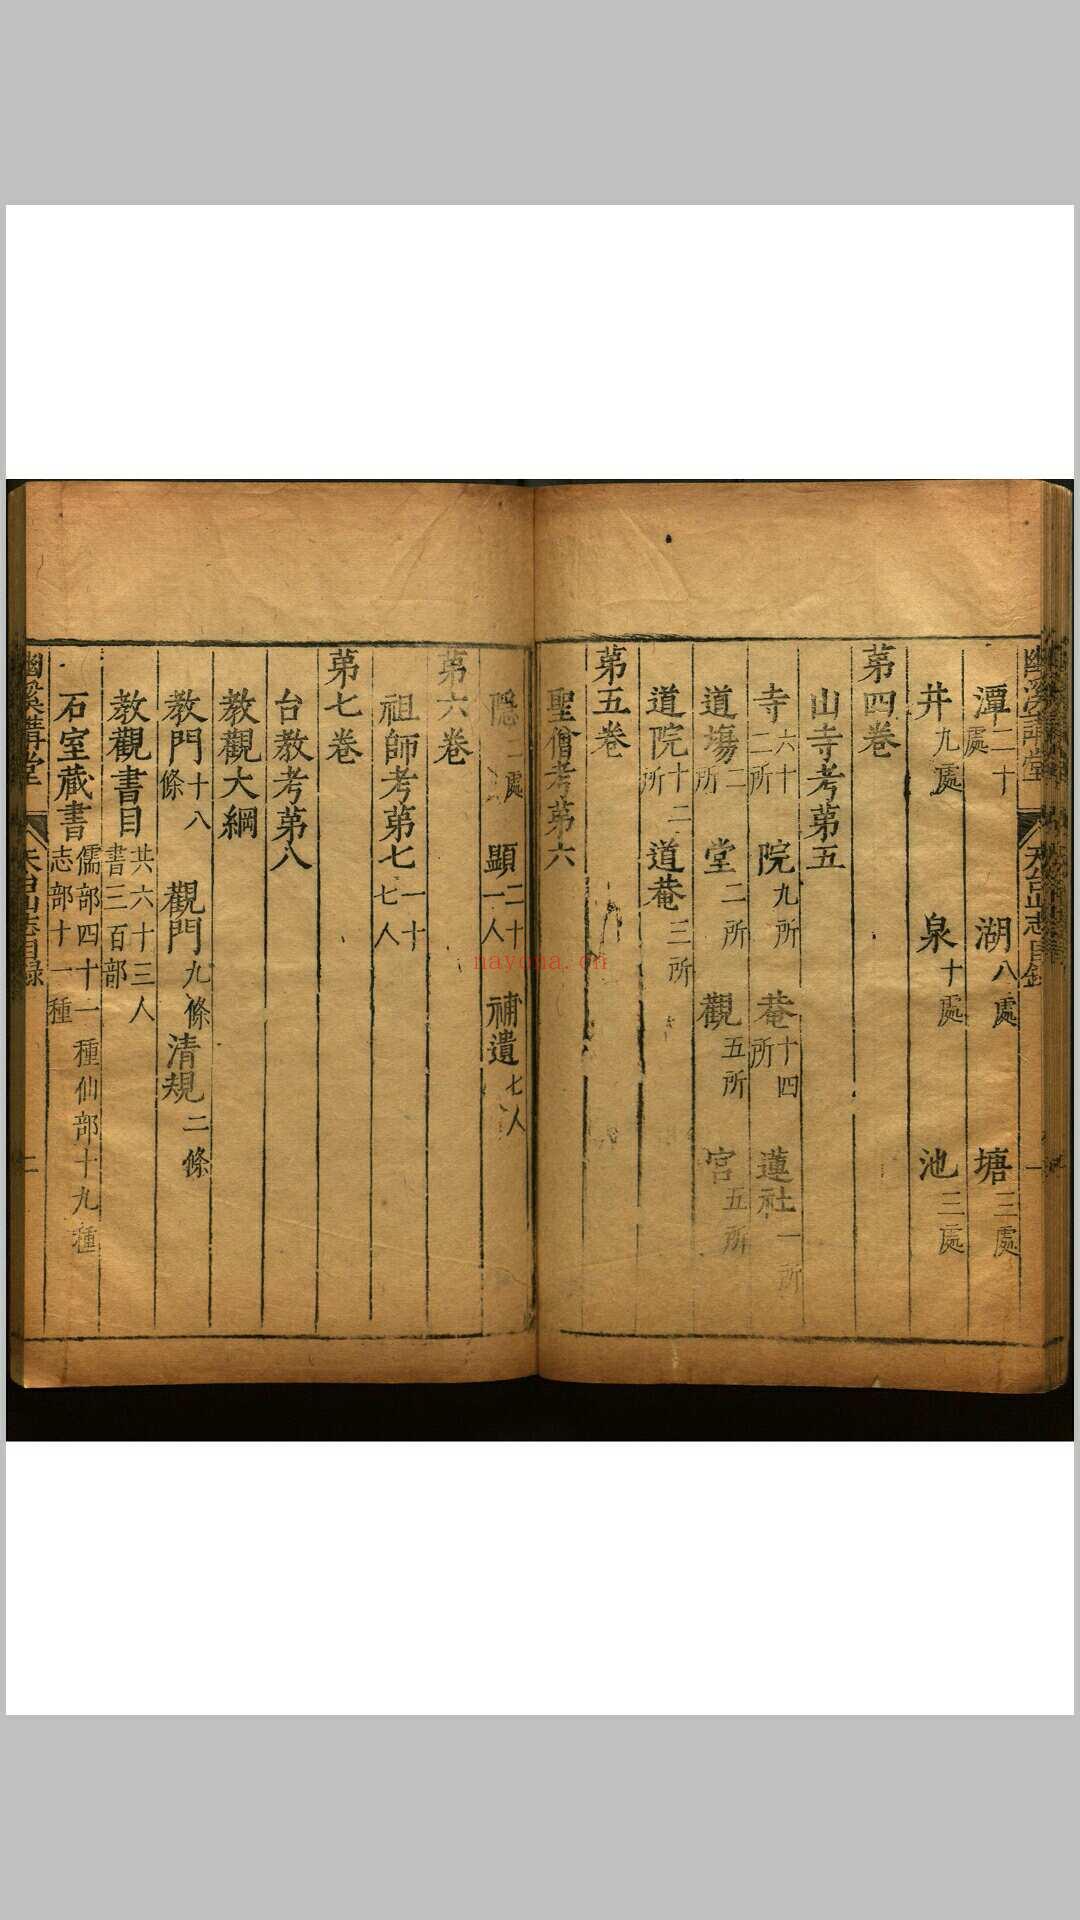 潭二十處 湖八處 塘三處
井九處 泉十處 池三處
第四卷
山寺考第五
寺六十二所 院九所 菴十四所 蓮社一所
道塲二所 堂二所 觀五所 宮五所
道院十二所 道菴三所
第五卷
聖僧考第六
隱二處 顯二十一人 補遺七人
第六卷
祖師考第七一十七人
第七卷
台教考第八
教觀大綱
教門十八條 觀門九條 清規二條
教觀書目共六十三人書三百部
石室藏書儒部四十一種仙部十九種志部十一種
幽溪講堂 天台山志目錄 二
幽溪講堂 天台山志目錄 一
nayona.cn